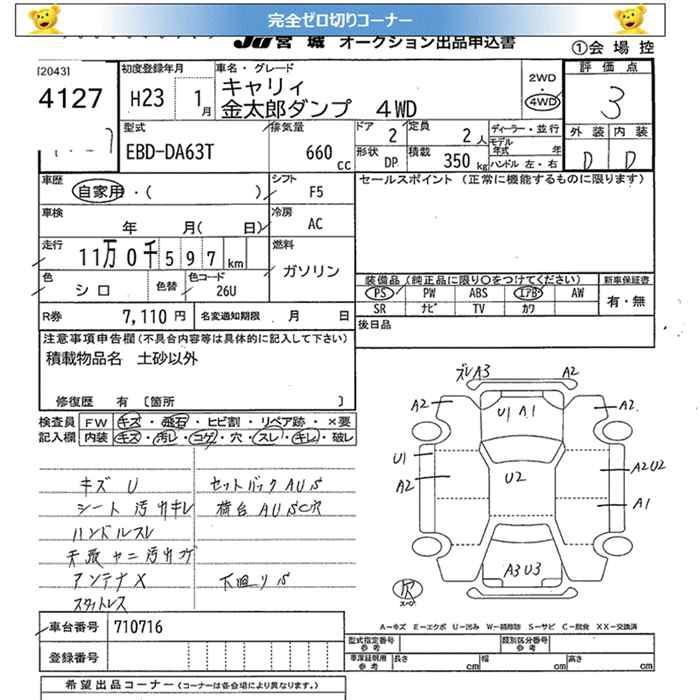 完全ゼロ切りコーナー
JU宮城 オークション出品申込書
①会場控
[2043]
4127
初度登録年月
H23 1月
車名・グレード
キャリィ
金太郎ダンプ 4WD
2WD
・
4WD
評価点
3
外装 内装
D D
型式
EBD-DA63T
排気量
660 cc
ドア
2
定員
2人
形状
DP
積載
350kg
ディーラー・並行
モデル年式 年
ハンドル 左・右
車歴
自家用・( )
シフト
F5
セールスポイント (正常に機能するものに限ります)
車検
年 月( 日)
冷房
AC
走行
11万0千597km
燃料
ガソリン
色
シロ
色替
色コード
26U
装備品 (純正品に限り○をつけてください)
PS PW ABS エアB AW
SR ナビ TV カワ
新車保証書
有・無
R券 7,110円
名変通知期限 月 日
後日品
注意事項申告欄(不具合内容等は具体的に記入して下さい)
積載物品名 土砂以外
修復歴 有 〔箇所 〕
検査員記入欄
FW キズ・飛石・ヒビ割・リペア跡・×要
内装 キズ・汚レ・コゲ・穴・スレ・キレ・破レ
キズ U
シート 汚レキレ
ハンドルスレ
天張 ヤニ 汚レ
アンテナX
スタットレス
セットバック AUS
荷台 AUSC穴
下廻りS
ズレA3 A2
A2 U1 A1 A2
U1
A2 U2 A2U2
A1
A3U3
A−キズ E−エクボ U−凹み W−補修跡 S−サビ C−腐食 XX−交換済
車台番号 710716
登録番号
型式指定番号 参考
類別区分番号 参考
車庫証明用 参考 長さ cm 幅 cm 高さ cm
希望出品コーナー (コーナーは各会場により異なります。)